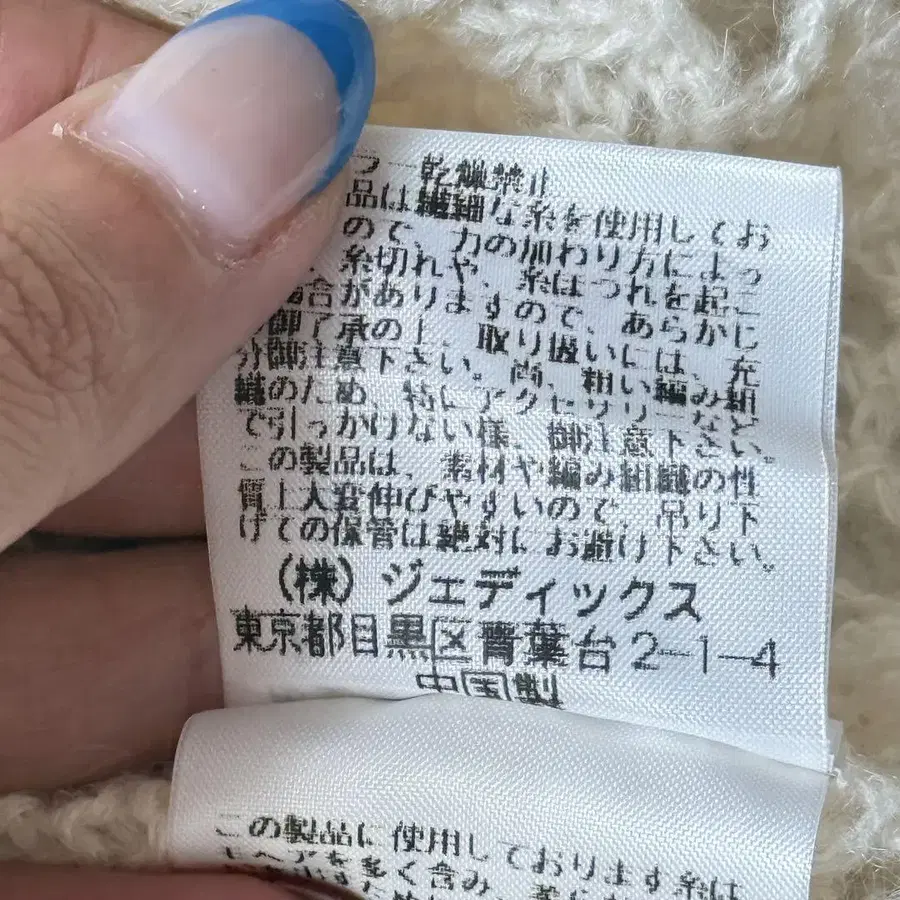 ラー乾燥禁止
品は繊細な糸を使用してお
ので、力の加わり方によっ
、糸切れや、糸ほつれを起こ
合がありますので、あらかじ
御了承の上、取り扱いには、充
分御注意下さい。尚、粗い編み組
織のため、特にアクセサリーなど
で引っかけない様、御注意下さい。
この製品は、素材や編み組織の性
質上大変伸びやすいので、吊り下
げての保管は絶対にお避け下さい。
(株)ジェディックス
東京都目黒区青葉台2-1-4
中国製
この製品に使用しております糸は
モヘアを多く含み、